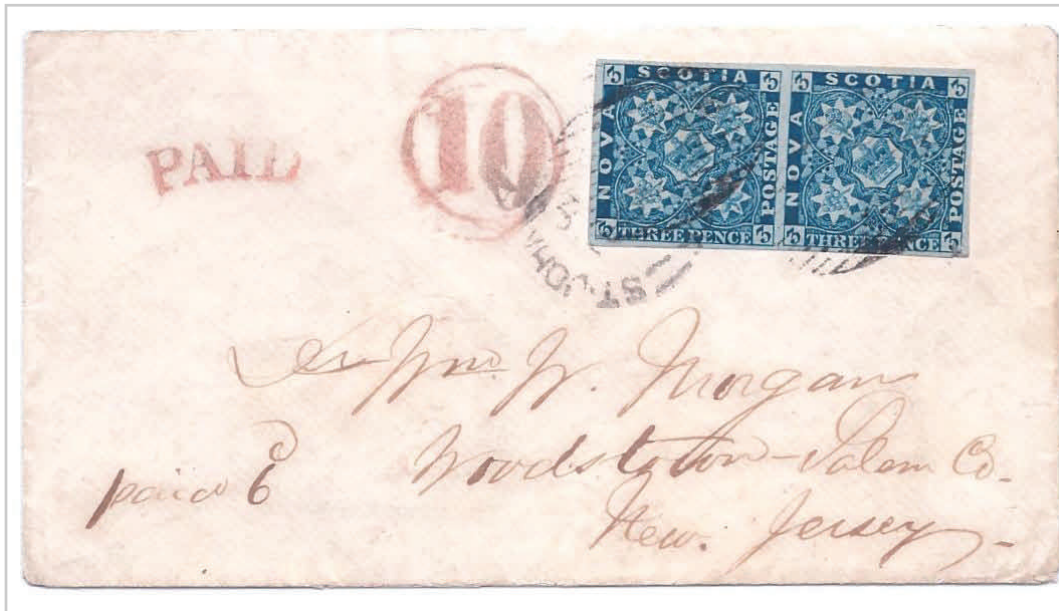 PAID
10
NOVA SCOTIA POSTAGE THREE PENCE 3 3 3 3
NOVA SCOTIA POSTAGE THREE PENCE 3 3 3 3
ST. JOHN
Wm. W. Morgan
Woodstown - Salem Co.
New. Jersey -
paid 6